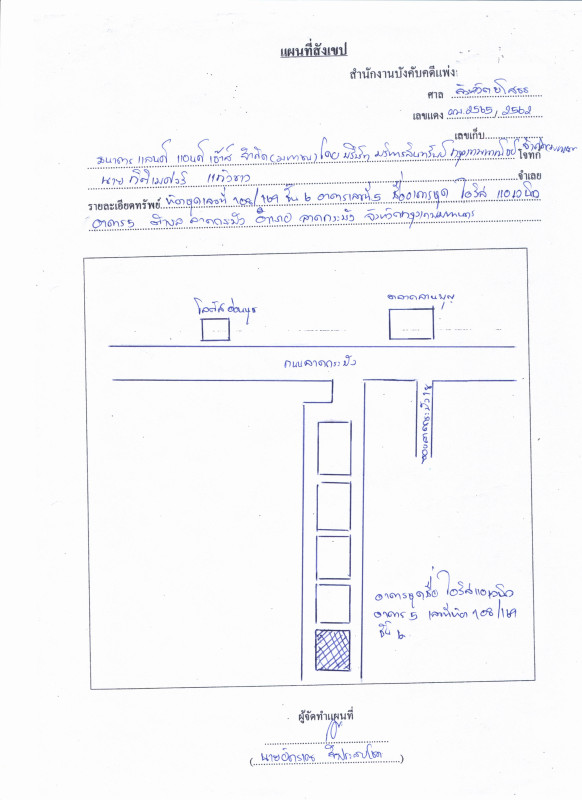 แผนที่สังเขป
สำนักงานบังคับคดีแพ่ง
ศาล
เลขแดง ผบ.2565/2562
เลขเก็บ
ธนาคาร แลนด์ แอนด์ เฮ้าส์ จำกัด (มหาชน) โดย บริษัท บริหารสินทรัพย์ โจทก์
นาย แก้วขาว จำเลย
รายละเอียดทรัพย์ ห้องชุดเลขที่ 108/169 ชั้น 6 อาคารเลขที่ 5 ชื่ออาคารชุด ไอริส แอเวนิว
อาคาร 5 ตำบล ลาดกระบัง อำเภอ ลาดกระบัง จังหวัดกรุงเทพมหานคร
โลตัสอ่อนนุช
ตลาด
ถนนลาดกระบัง
ซอยลาดกระบัง 18
อาคารชุดชื่อ ไอริสแอเวนิว
อาคาร 5 เลขที่ห้อง 108/169
ชั้น 6
ผู้จัดทำแผนที่